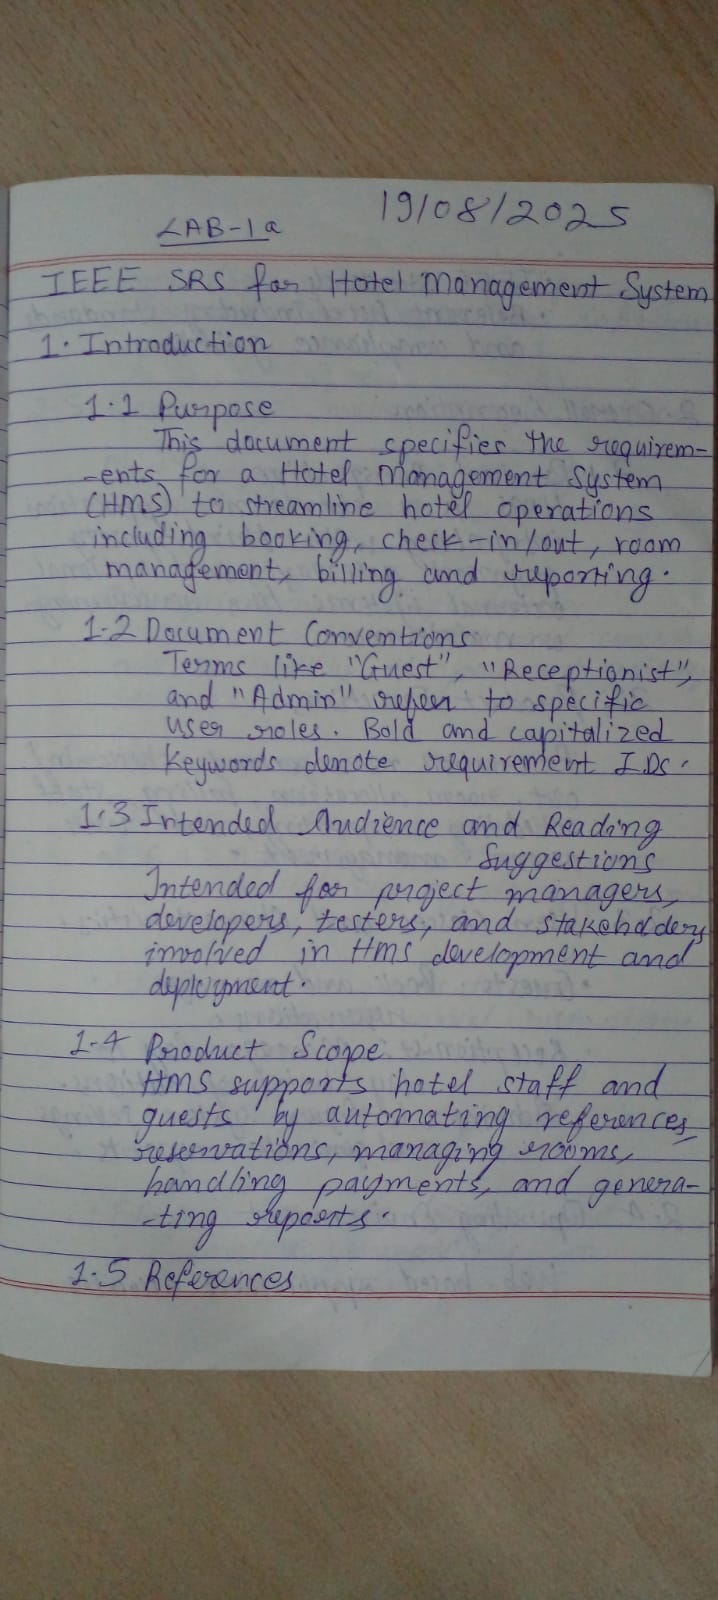 LAB-1a
19/08/2025
IEEE SRS for Hotel Management System
1. Introduction
1.1 Purpose
This document specifies the requirem-
-ents for a Hotel Management System
(HMS) to streamline hotel operations
including booking, check-in/out, room
management, billing and reporting.
1.2 Document Conventions
Terms like "Guest", "Receptionist",
and "Admin" refer to specific
user roles. Bold and capitalized
keywords denote requirement IDs.
1.3 Intended Audience and Reading
Suggestions
Intended for project managers,
developers, testers, and stakeholders
involved in HMS development and
deployment.
1.4 Product Scope
HMS supports hotel staff and
guests by automating references,
reservations, managing rooms,
handling payments, and genera-
-ting reports.
1.5 References